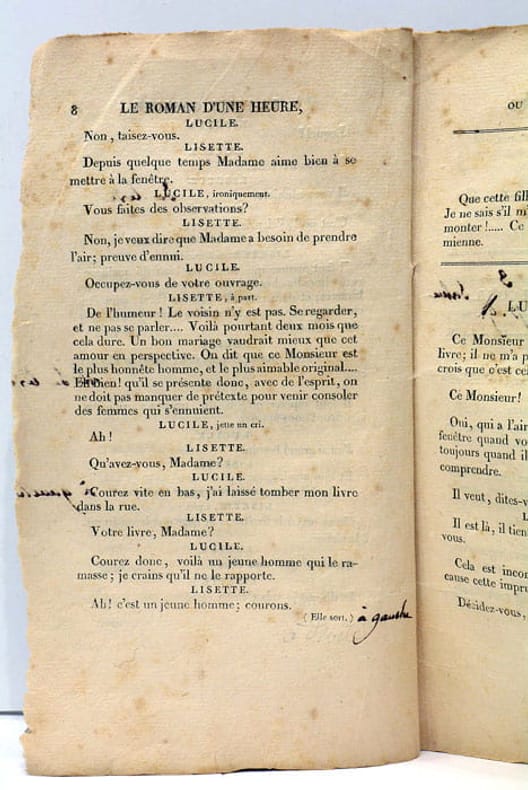 8 LE ROMAN D'UNE HEURE,
LUCILE.
Non, taisez-vous.
LISETTE.
Depuis quelque temps Madame aime bien à se
mettre à la fenêtre.
LUCILE, ironiquement.
Vous faites des observations?
LISETTE.
Non, je veux dire que Madame a besoin de prendre
l'air; preuve d'ennui.
LUCILE.
Occupez-vous de votre ouvrage.
LISETTE, à part.
De l'humeur! Le voisin n'y est pas. Se regarder,
et ne pas se parler.... Voilà pourtant deux mois que
cela dure. Un bon mariage vaudrait mieux que cet
amour en perspective. On dit que ce Monsieur est
le plus honnête homme, et le plus aimable original....
Eh bien! qu'il se présente donc, avec de l'esprit, on
ne doit pas manquer de prétexte pour venir consoler
des femmes qui s'ennuient.
LUCILE, jette un cri.
Ah!
LISETTE.
Qu'avez-vous, Madame?
LUCILE.
Courez vite en bas, j'ai laissé tomber mon livre
dans la rue.
LISETTE.
Votre livre, Madame?
LUCILE.
Courez donc, voilà un jeune homme qui le ra-
masse; je crains qu'il ne le rapporte.
LISETTE.
Ah! c'est un jeune homme; courons.
(Elle sort.) à gauche
OU
Que cette fill
Je ne sais s'il m
monter!..... Ce
mienne.
LU
Ce Monsieur
livre; il ne m'a p
crois que c'est cel
Ce Monsieur!
Oui, qui a l'air
fenêtre quand vo
toujours quand il
comprendre.
Il veut, dites-v
L
Il est là, il tien
vous.
Cela est incon
cause cette impru
Décidez-vous,